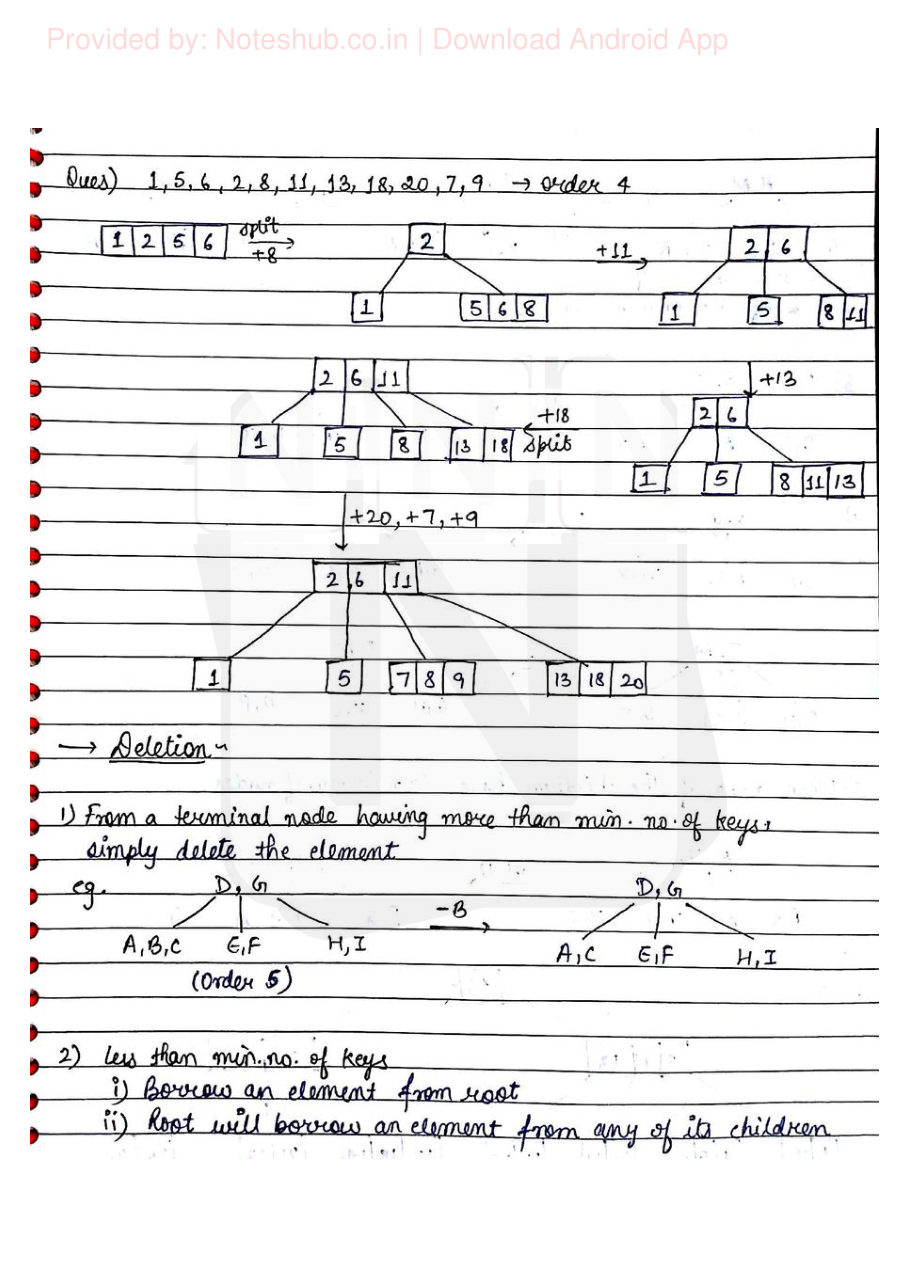 Provided by: Noteshub.co.in | Download Android App
Ques) 1, 5, 6, 2, 8, 11, 13, 18, 20, 7, 9. → order 4
1 2 5 6 split +8 2 +11 2 6
1 5 6 8 1 5 8 11
2 6 11 +13
1 5 8 13 18 +18 split 2 6
1 5 8 11 13
+20, +7, +9
2 6 11
1 5 7 8 9 13 18 20
→ Deletion -
1) From a terminal node having more than min. no. of keys,
simply delete the element
eg. D, G -B D, G
A, B, C E, F H, I A, C E, F H, I
(Order 5)
2) less than min. no. of keys
i) Borrow an element from root
ii) Root will borrow an element from any of its children